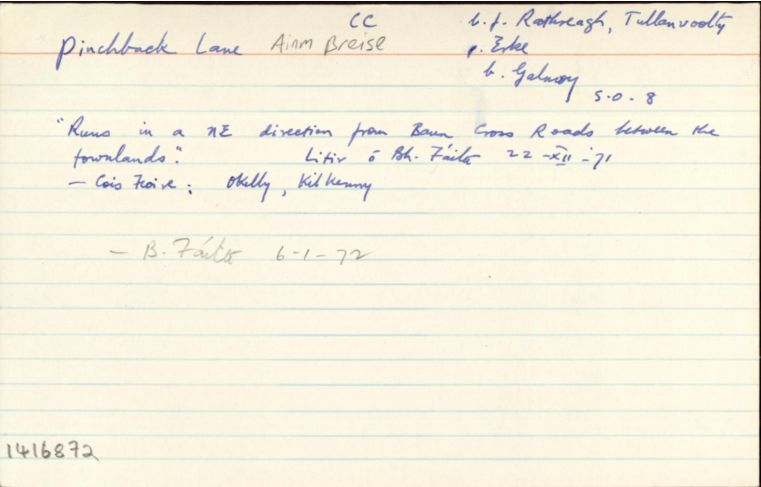 CC
Pinchback Lane Ainm Breise
b.f. Rathreagh, Tullanvoolty
p. Erke
b. Galmoy
S.O. 8
"Runs in a NE direction from Baun Cross Roads between the
townlands". Litir ó Bh. Fáilte 22-XII-71
— Cois Fhoire: Okelly, Kilkenny
— B. Fáilte 6-1-72
1416872